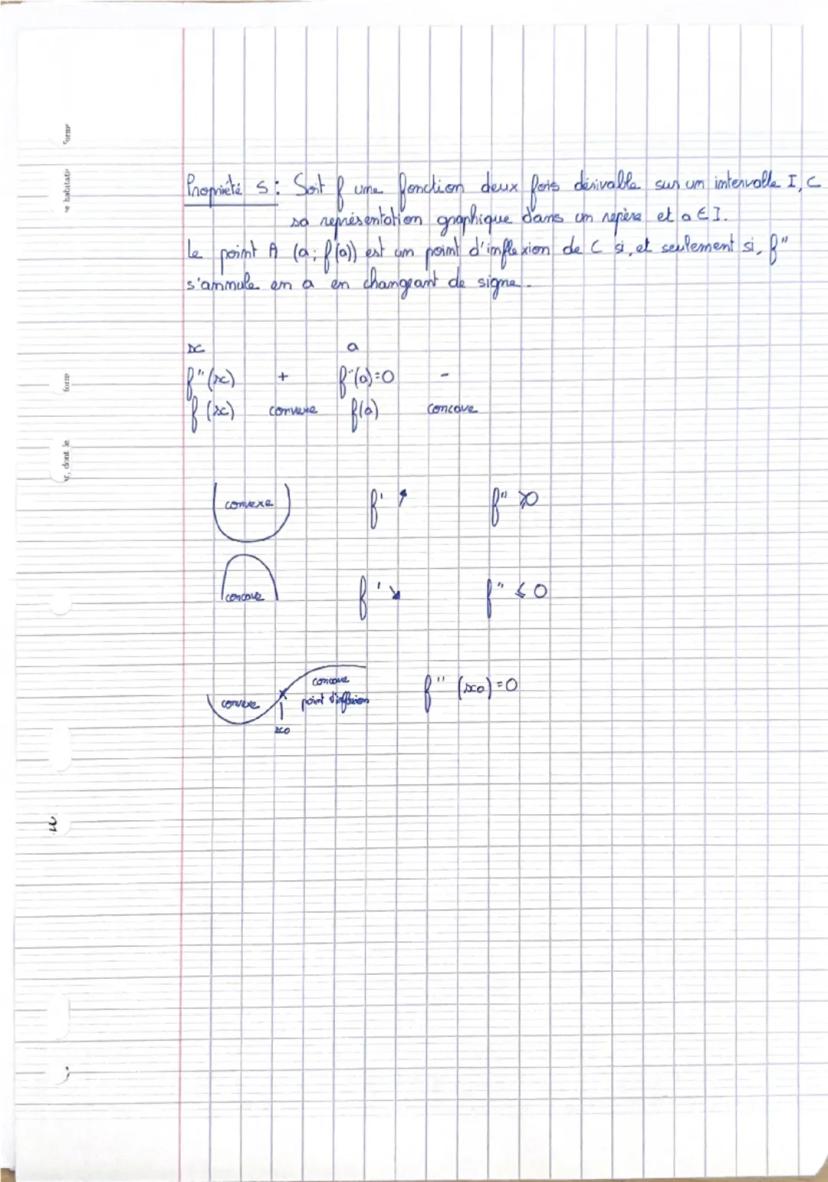 Propriété 5 : Soit f une fonction deux fois dérivable sur un intervalle I, C
sa représentation graphique dans un repère et a ∈ I.
Le point A (a ; f(a)) est un point d'inflexion de C si, et seulement si, f"
s'annule en a en changeant de signe.
x a
f"(x) + f"(a)=0 -
f(x) convexe f(a) concave
convexe f' ↗ f" ≥0
concave f' ↘ f" ≤ 0
concave
convexe point d'inflexion f" (x0)=0
x0
forme
e habitats
forme
r, dont le